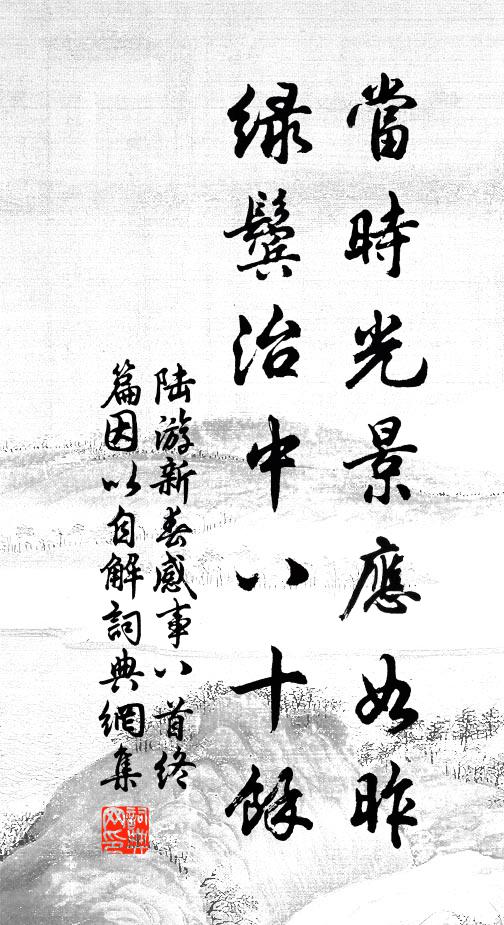 當時光景應如昨
綠鬢治中八十餘
陆游新春感事八首终
篇因以自解詞典網集